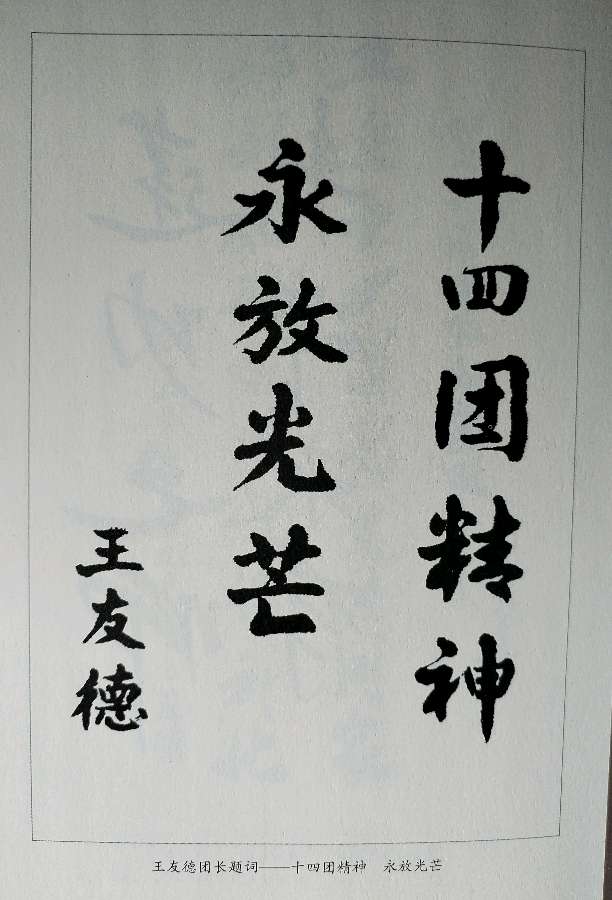 十四团精神
永放光芒
王友德
王友德团长题词——十四团精神　永放光芒